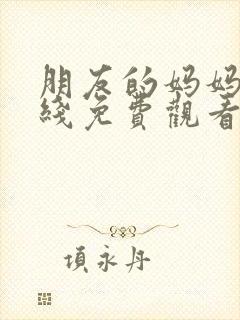 朋友的妈妈
綫免費觀看
項永丹